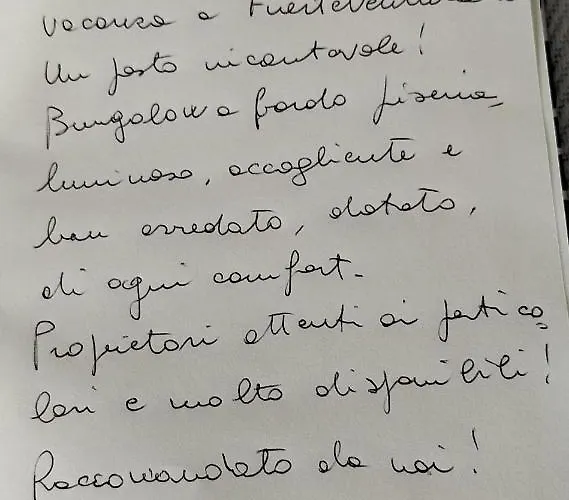 vacanza a Fuerteventura
Un posto incantevole!
Bungalow a bordo piscina,
luminoso, accogliente e
ben arredato, dotato,
di ogni comfort.
Proprietari attenti ai partico
lari e molto disponibili!
Raccomandato da noi!